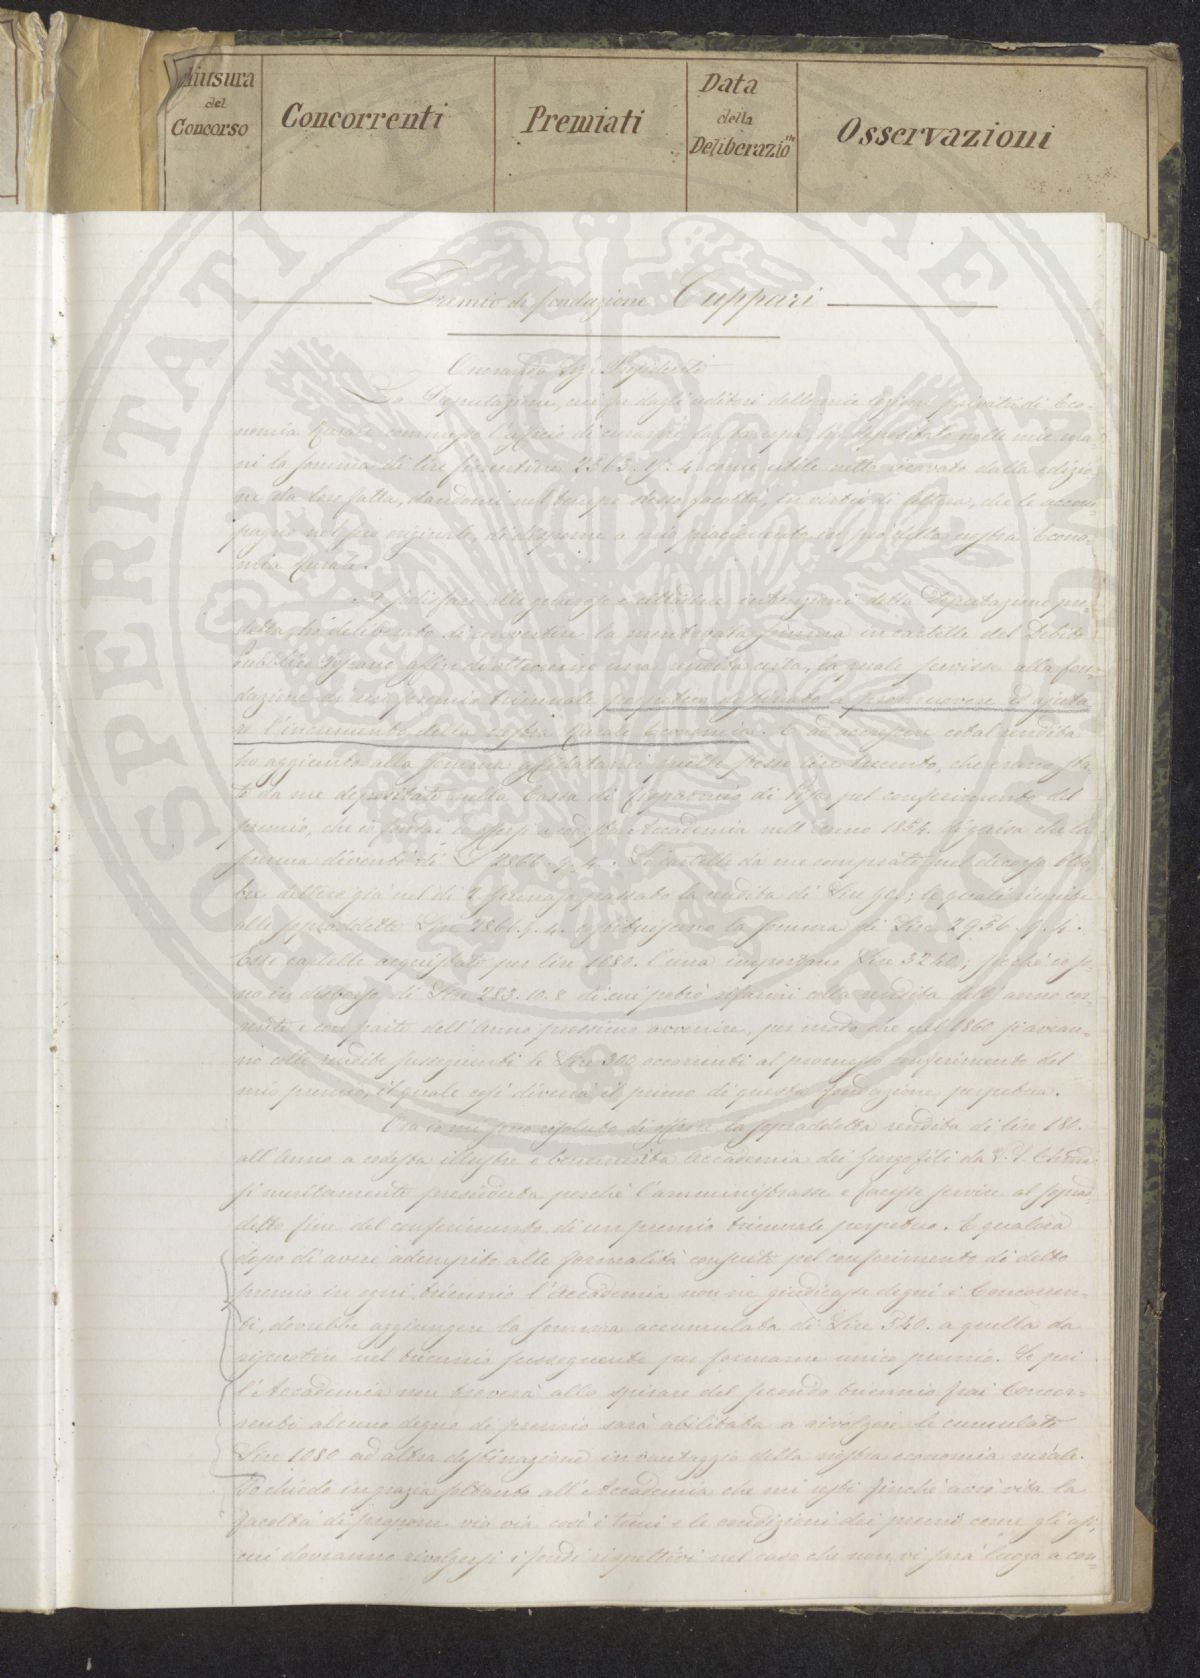 Chiusura del Concorso
Concorrenti
Premiati
Data della Deliberazio.ne
Osservazioni
Premio di fondazione Cuppari
Onorando Sig. Presidente
La Deputazione, cui fu dagli uditori delle mie lezioni private di Eco-
nomia Rurale commesso l'uficio di curarne la stampa, ha depositato nelle mie ma-
ni la somma di lire fiorentine 2563. 9. 4. come utile netto ricavato dalla edizio-
ne da loro fatta, dandomi nel tempo stesso facoltà, in virtù di lettera, che le accom-
pagno nel suo originale, di disporne a mio piacimento in prò della nostra Econo-
mia Rurale.
A sodisfare alle generose e cittadine intenzioni della Deputazione pre-
detta, ho deliberato di convertire la mentovata somma in cartelle del Debito
Pubblico Toscano affine di ottenerne una rendita certa, la quale servisse alla fon-
dazione di un premio triennale perpetuo destinato a promuovere ed ajuta-
re l'incremento della nostra Rurale Economia. E ad accrescere cotal rendita
ho aggiunto alla somma affidatami quelle stesse lire trecento, che erano sta-
te da me depositate nella Cassa di Risparmio di Pisa pel conferimento del
premio, che io pensai offrirsi a codesta Accademia nell'anno 1854. di guisa che la
somma diventò di L. 2866. 9. 4. Le cartelle da me comprate nel decorso otto-
bre dettero già nel dì 2 Gennajo passato la rendita di Lire 90; le quali riunite
alle sopraddette Lire 2866. 9. 4. costituiscono la somma di Lire 2956. 9. 4.
Esse cartelle acquistate per lire 1080. l'una importano Lire 3240; sicchè io so-
no in disborso di Lire 283. 10. 8 di cui potrò rifarmi colla rendita dell'anno cor-
rente e con parte dell'Anno prossimo avvenire, per modo che nel 1860 si avran-
no colle rendite susseguenti le Lire 300 occorrenti al promesso conferimento del
mio premio, il quale così diverrà il primo di questa fondazione perpetua.
Ora io mi sono risoluto di offrire la sopraddetta rendita di lire 180.
all'Anno a codesta illustre e benemerita Accademia dei Georgofili da V. S. Ch.ma
sì meritamente presieduta perchè l'amministrasse e facesse servire al sopra-
detto fine del conferimento di un premio triennale perpetuo. E qualora
dopo di avere adempito alle formalità consuete pel conferimento di detto
premio in ogni triennio l'Accademia non ne giudicasse degni i Concorren-
ti, dovrebbe aggiungere la somma accumulata di Lire 540. a quella da
riscuotere nel triennio susseguente per formarne unico premio. Se poi
l'Accademia non troverà allo spirare del secondo triennio frai Concor-
renti alcuno degno di premio sarà abilitata a rivolgere le cumulate
Lire 1080 ad altra destinazione in vantaggio della nostra economia rurale.
Io chiedo in grazia soltanto all'Accademia che mi resti finchè avrò vita la
facoltà di proporre via via così i temi e le condizioni dei premi come gli usi,
cui dovranno rivolgersi i fondi rispettivi nel caso che non vi sarà luogo a con-